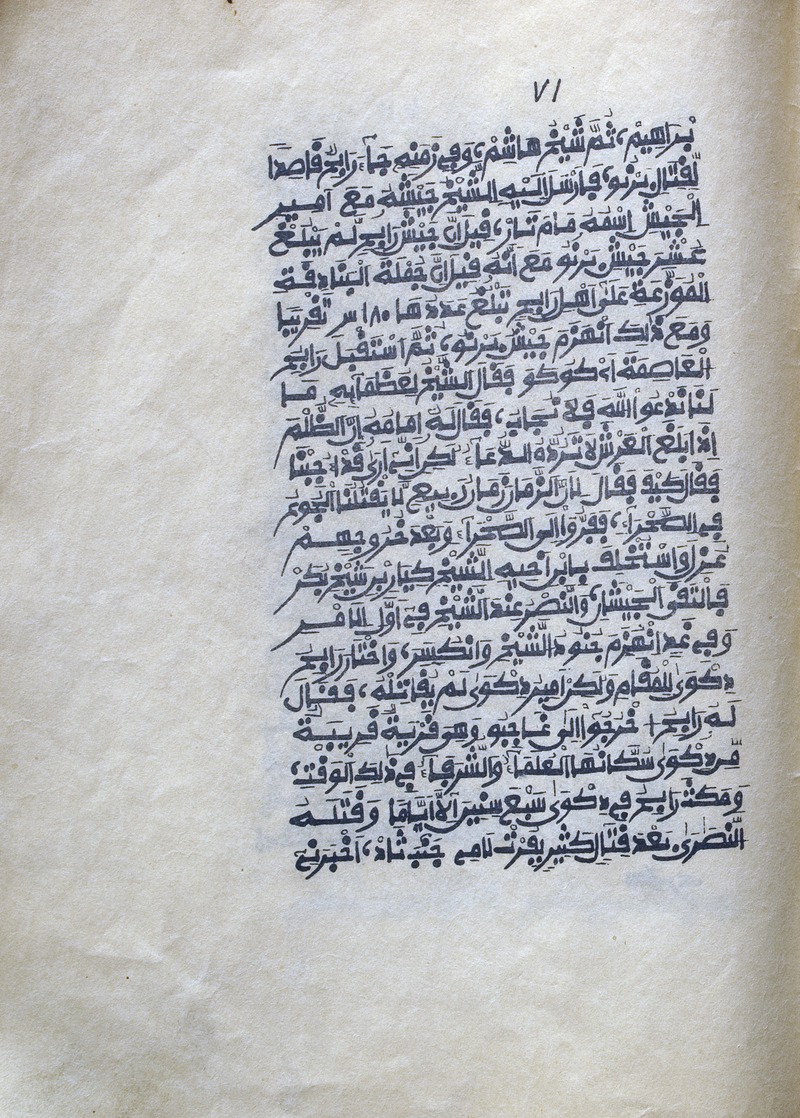 ٧١
براهيم، ثُمَّ شَيْخ هاشم، وفي زمنه جآء رابح فاصدا
لقتال برنو، فارسل اليه الشيخ جيشه مع امير
الجيش اسمه مام تار، فيل ان جيش رابح لم يبلغ
عشر جيش برنو مع انه فيل ان جملة البنادفة
الموزعة على اهل رابح تبلغ عددها ١٨٠ س تفريبا
ومع ذلك انهزم جيش برنو، ثم استفبل رابح
العاصمة اي كوكو ففال الشيخ لعظمآيه ما
لنا ندعوا الله فلا نجاب، ففال له امامه ان الظلم
اذا بلغ العرش لا ترده الدعآء لكن اني ارى فد اجبنا
ففال كيف ففال لان الزمان زمان ربيع لا يفتلنا الجوع
في الصحرآء، ففروا الى الصحرآء وبعد خروجهم
عزلوا واستخلف بابن اخيه الشيخ كيار بن شيخ بكر
فالتفى الجيشان، والنصر عند الشيخ في اول الامر
وفي غد انهزم جنود الشيخ وانكسر، واختار رابح
دكوى للمفام ولكن امير دكوى لم يفاتله، ففال
له رابح اخرجوا الى غاجبو وهي فرية فريبة
من دكوى سكانها العلمآء والشرفآء في ذلك الوفت،
ومكث رابح في دكوى سبع سنين الا اياما وفتله
النصرى بعد فتال كثير بفرت لامي جنب شاد، اخبرني